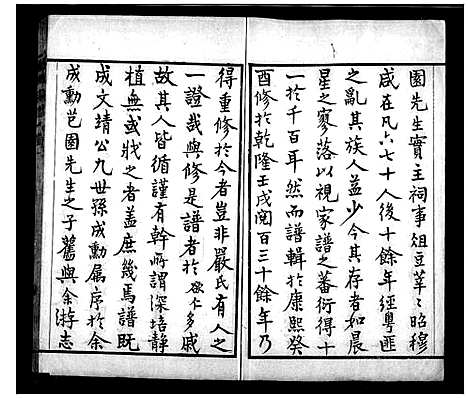 園先生實主祠事俎豆莘莘昭穆
咸在凡六七十人後十餘年經粵匪
之亂其族人益少今其存者如晨
星之寥落以視家譜之蕃衍得十
一於千百耳然而譜輯於康熙癸
酉修於乾隆壬戌閱百三十餘年乃
得重修於今者豈非嚴氏有人之
一證哉與修是譜者於欲仁多戚
故其人皆循謹有幹所謂深培靜
植無或戕之者蓋庶幾焉譜既
成文靖公九世孫成勳屬序於余
成勳芑園先生之子舊與余游志